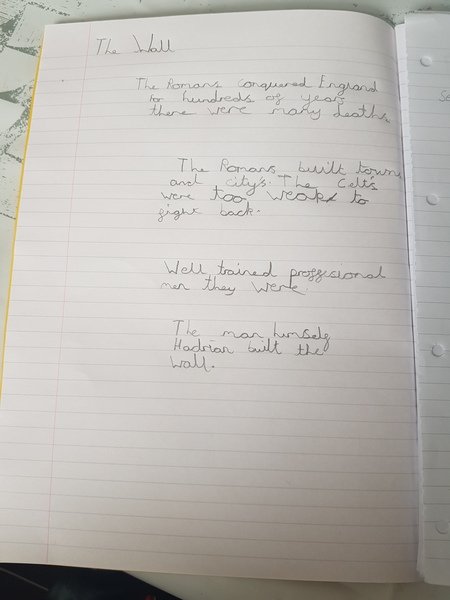 The Wall
The Romans conquered England
for hundreds of years
there were many deaths.
The Romans built towns
and city's. The Celt's
were too weak to
fight back.
Well trained proffesional
men they were.
The man himself
Hadrian built the
wall.
Se